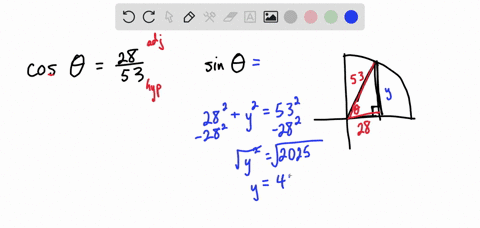 adj
cos θ = 28/53
hyp
sin θ =
28² + y² = 53²
-28² -28²
√y² = √2025
y = 4
53
y
θ
28